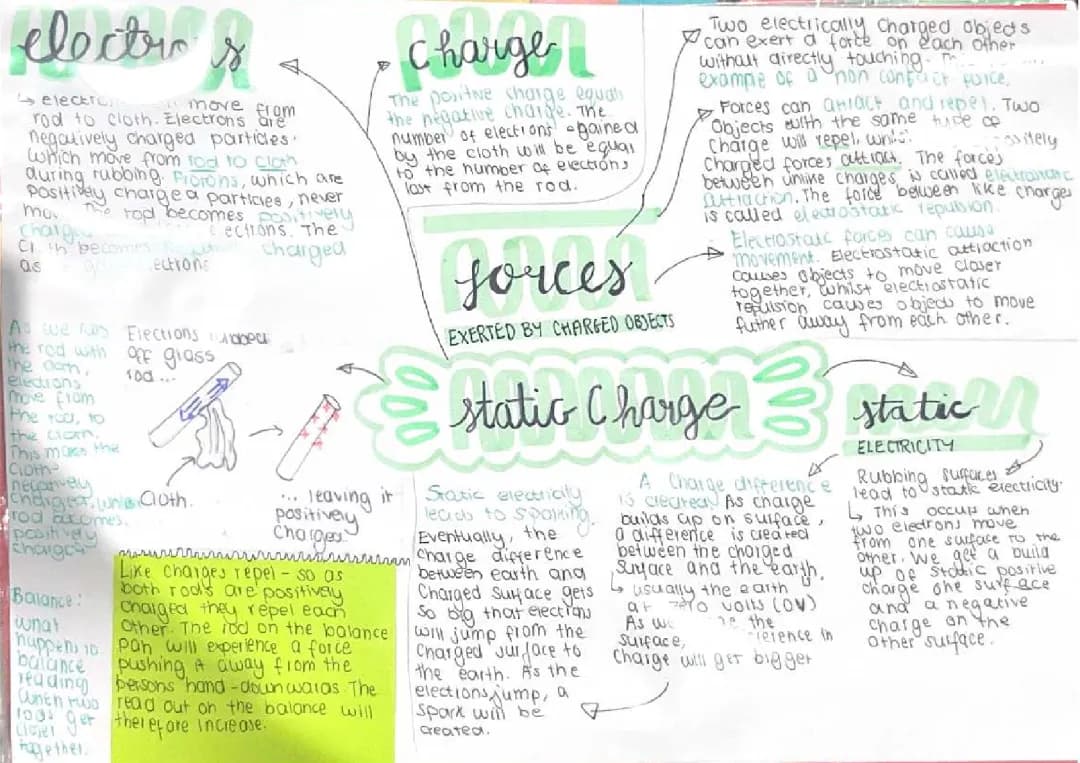 electro s
↳ electro move from
rod to cloth. Electrons are
negatively charged particles.
which move from rod to cloth
during rubbing. Protons, which are
positively charge a particles, never
mo The rod becomes positively
charg ectrons. The
Cl th becomes charged
as ectrons
charge
The positive charge equals
the negative charge. The
number of electrons gained
by the cloth will be equal
to the number of electrons
lost from the rod.
Two electrically charged objects
can exert a force on each other
without directly touching. Th
example of a non contact force.
Forces can attract and repel. Two
Objects with the same type of
Charge will repel, whil sitely
Charged forces attract. The forces
between unlike charges, is called electrostatic
attraction. The force between like charges
is called electrostatic repulsion.
Electrostatic forces can cause
movement. Electrostatic attraction
causes objects to move closer
together, whilst electrostatic
repulsion causes objects to move
futher away from each other.
forces
EXERTED BY CHARGED OBJECTS
static Charge
static
ELECTRICITY
As we rub
the rod with
the cloth,
electrons
move from
the rod, to
the cloth.
This makes the
cloth
negatively
charged, while
rod becomes
positively
charged
Electrons rubbed
off glass
rod ...
cloth.
... leaving it
positively
charged
Balance:
what
happens to
balance
reading
when two
rods get
closer
together.
Like charges repel - so as
both rods are positively
charged they repel each
other. The rod on the balance
pan will experience a force
pushing it away from the
persons hand - downwards. The
read out on the balance will
therefore increase.
Static electricity
leads to sparking.
Eventually, the
charge difference
between earth and
Charged surface gets
so big that electrons
will jump from the
charged surface to
the earth. As the
electrons jump, a
spark will be
created.
A Charge difference
is created. As charge
builds up on surface,
a difference is created
between the charged
surface and the earth.
↳ usually the earth
at zero volts (0V)
As we the
surface, ference in
Charge will get bigger
Rubbing surfaces
lead to static electricity.
↳ This occurs when
two electrons move
from one surface to the
other. We get a build
up of static positive
charge one surface
and a negative
charge on the
other surface.